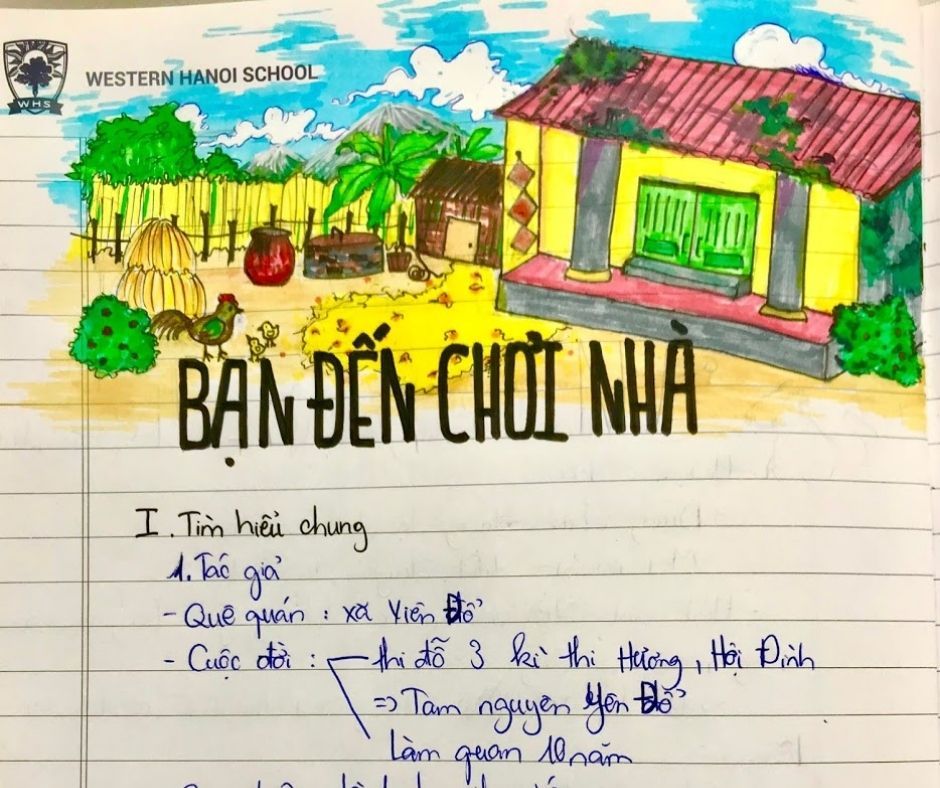 WESTERN HANOI SCHOOL
WHS
BẠN ĐẾN CHƠI NHÀ
I. Tìm hiểu chung
1. Tác giả
- Quê quán : xã Yên Đổ
- Cuộc đời : thi đỗ 3 kì thi Hương, Hội Đình
=> Tam nguyên Yên Đổ
Làm quan 10 năm